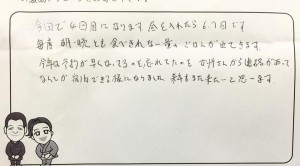 今回で4回目になります。昼を入れたら6.7回です
毎度 朝・晩とも食べきれない量のごはんが出てきます。
今年は予約が早くなってるのを忘れてたのを 女将さんから連絡があって
なんとか宿泊できる様になりました 来年また来たいと思います